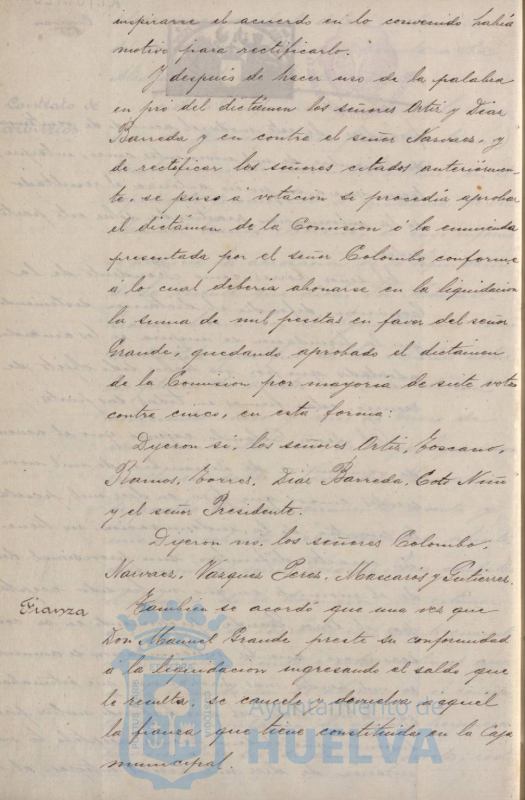 inspirarse el acuerdo en lo convenido habia
motivo para rectificarlo.
Y después de hacer uso de la palabra
en pró del dictámen los señores Ortiz y Diaz
Barreda y en contra el señor Narvaez, y
de rectificar los señores citados anteriormen-
te, se puso á votacion si procedía aprobar
el dictámen de la Comision ó la enmienda
presentada por el señor Colombo conforme
á lo cual debería abonarse en la liquidacion
la suma de mil pesetas en favor del señor
Grande, quedando aprobado el dictámen
de la Comision por mayoría de siete votos
contra cinco, en esta forma:
Dijeron si, los señores Ortiz, Toscano,
Ramos, Torres, Diaz Barreda, Coto Niño
y el señor Presidente.
Dijeron no, los señores Colombo,
Narvaez, Vazquez Perez, Mascarós y Gutierrez.
Fianza
Tambien se acordó que una vez que
Don Manuel Grande preste su conformidad
á la liquidacion ingresando el saldo que
le resulta, se cancele y devuelva á aquel
la fianza que tiene constituida en la Caja
municipal.
Ayuntamiento de
HUELVA